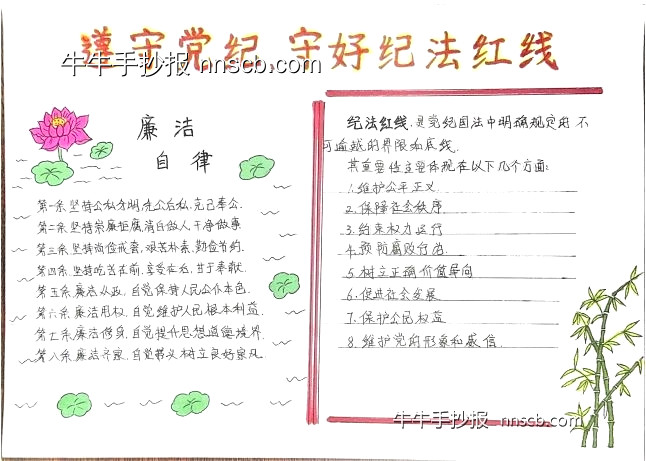 遵守党纪、守好纪法红线
牛牛手抄报 nnscb.com
廉洁
自律
第一条坚持公私分明,先公后私,克己奉公.
第二条坚持崇廉拒腐,清白做人,干净做事.
第三条坚持尚俭戒奢,艰苦朴素,勤俭节约.
第四条坚持吃苦在前,享受在后,甘于奉献.
第五条廉洁从政,自觉保持人民公仆本色.
第六条廉洁用权,自觉维护人民根本利益.
第七条廉洁修身,自觉提升思想道德境界.
第八条廉洁齐家,自觉带头树立良好家风.
纪法红线,是党纪国法中明确规定的不
可逾越的界限和底线.
其重要性主要体现在以下几个方面:
1.维护公平正义
2.保障社会秩序
3.约束权力运行
4.预防腐败行为
5.树立正确价值导向
6.促进社会发展
7.保护公民权益
8.维护党的形象和威信
牛牛手抄报 nnscb.com